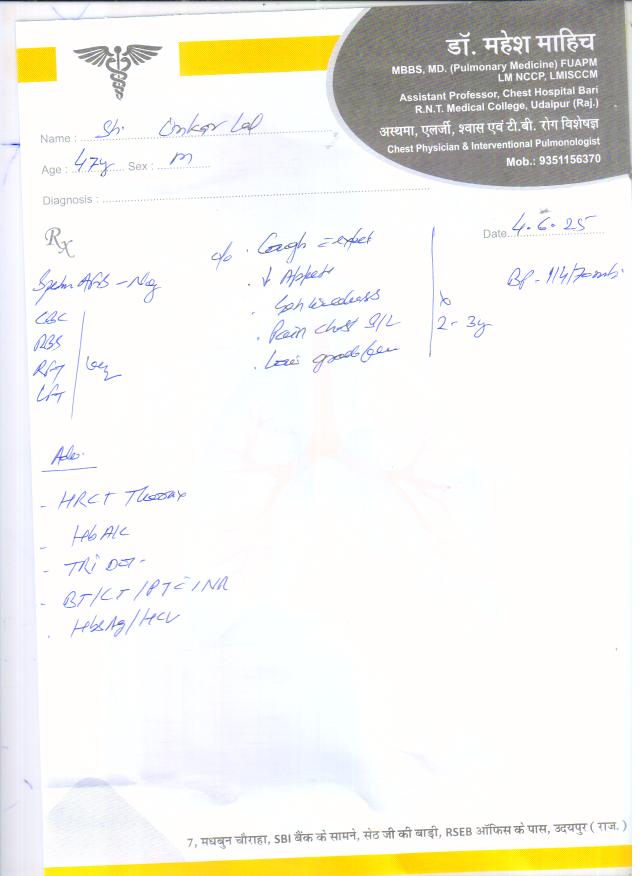 डॉ. महेश माहिच
MBBS, MD. (Pulmonary Medicine) FUAPM
LM NCCP, LMISCCM
Assistant Professor, Chest Hospital Bari
R.N.T. Medical College, Udaipur (Raj.)
अस्थमा, एलर्जी, श्वास एवं टी.बी. रोग विशेषज्ञ
Chest Physician & Interventional Pulmonologist
Mob.: 9351156370
Name : Sh. Onkar Lal
Age : 47y Sex : M
Diagnosis :
Date 4.6.25
Rx
c/o . Cough = expet
. ↓ Appetite
.
. Pain chest
. Low grade fever
x
2 - 3y
BP -
Sputum AFB - Neg
CBC
RBS
RFT
LFT
Adv.
- HRCT Thorax
- HbA1C
- TRI DOT -
- BT/CT/PT = INR
. HbsAg/HCV
7, मधबुन चौराहा, SBI बैंक के सामने, संठ जी की बाड़ी, RSEB ऑफिस के पास, उदयपुर ( राज. )